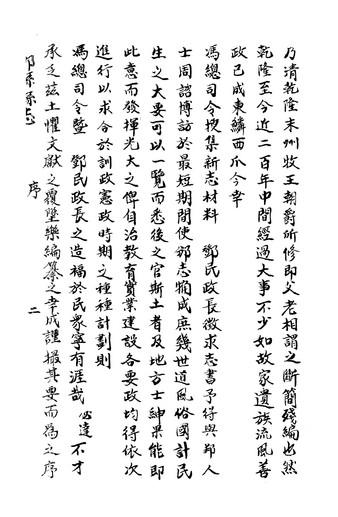 乃清乾隆末州牧王朝爵所修即父老相謂之斷簡殘編也然
乾隆至今近二百年中間經過大事不少如故家遺族流風善
政已成東鱗西爪今幸
馮總司令搜集新志材料　鄧民政長徵求志書予得與邦人
士周諮博訪於最短期間使邳志犕成庶幾世道風俗國計民
生之大要可以一覽而悉後之官斯土者及地方士紳果能即
此意而發揮光大之俾自治教育實業建設各要政均得依次
進行以求合於訓政憲政時期之種種計劃則
馮總司令暨　鄧民政長之造福於民衆寧有涯哉 必達 不才
承乏茲土懼文獻之覆墜樂編纂之幸成謹撮其要而為之序
縣志　序　二